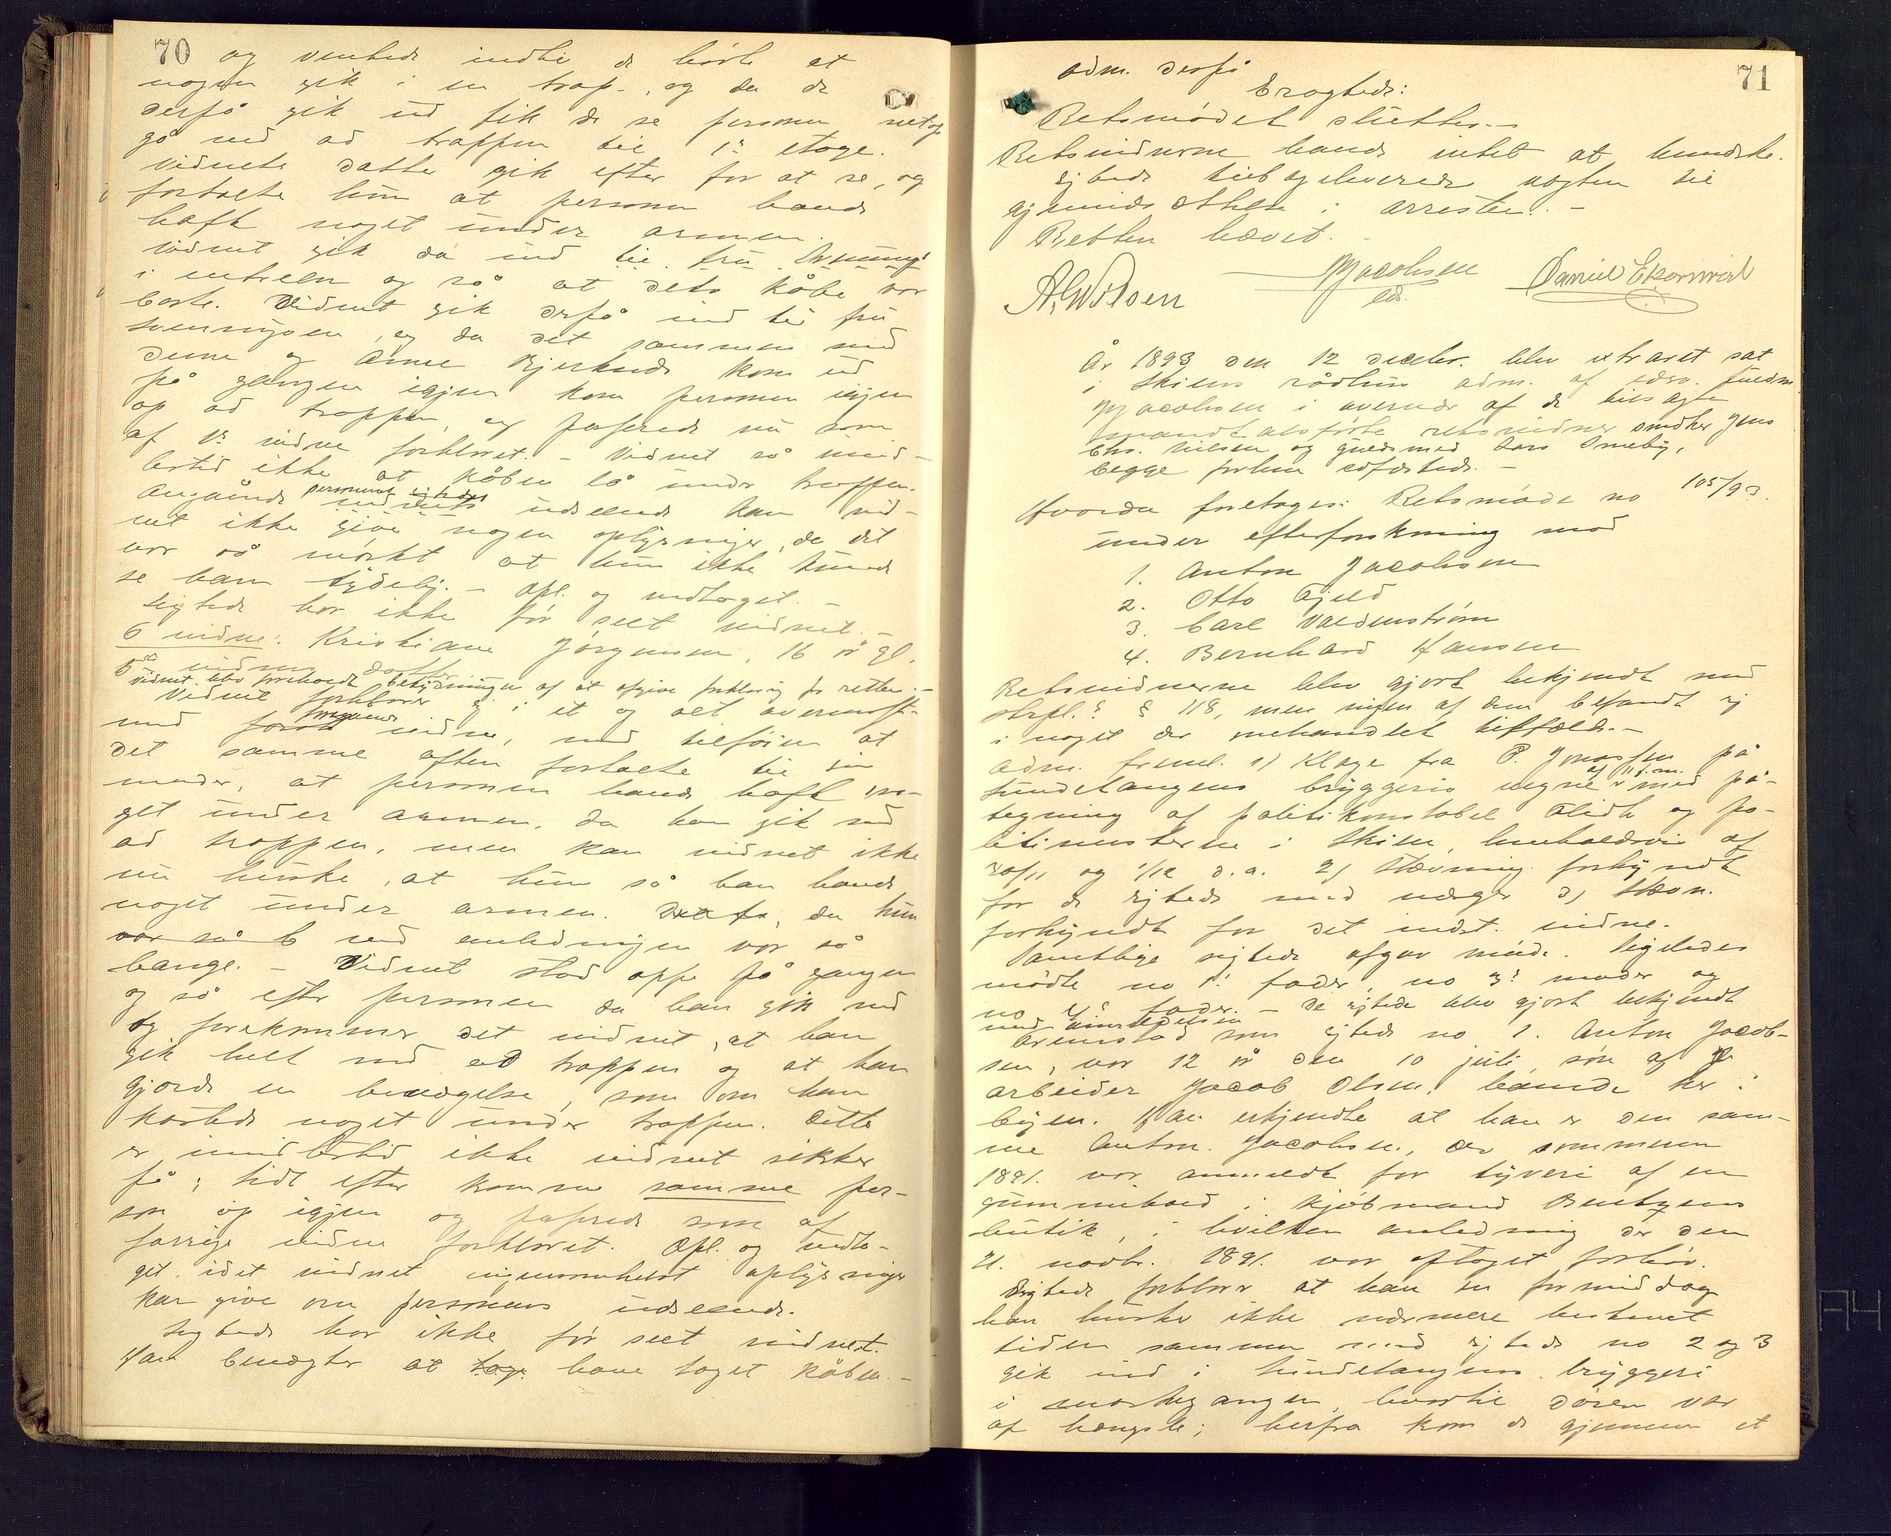 70
og ventede indtil de hørte at
nogen gik i en trap-, og da de
derpå gik ud fik de se personen netop
gå ned ad trappen til 1ste etage.
Vidnets datter gik efter for at se, og
fortalte hun at personen havde
haft noget under armen.
Vidnet gik da ind til fru
i entreen og så at dets kåbe var
borte. Vidnet gik derpå ind til fru
Svenningsen, og da det sammen med
denne og Anne Bjerknds kom ud
på gangen igjen kom personen igjen
op ad trappen, og passerede nu som
af 1ste vidne forklaret. – Vidnet så imid-
lertid ikke at kåben lå under trappen.
Angående personens udseende kan vid-
net ikke give nogen oplysninger, da det
var så mørkt at hun ikke kunde
se ham tydelig. – Opl. og vedtaget. –
Sigtede har ikke før seet vidnet. –
6 vidne: Kristiane Jørgensen, 16 år gl.
5te vidnes datter
vidnet blev foreholdt betydningen af at afgive forklaring for retten. –
Vidnet forklarer sig i et og alt overensst.
med foregående vidne, med tilføien at
det samme aften fortalte til sin
moder, at personen havde haft no-
get under armen, da han gik ned
ad trappen, men kan vidnet ikke
nu huske, at hun så han havde
noget under armen. da hun
ved anledningen var så
bange. – Vidnet stod oppe på gangen
og så efter personen da han gik ned
og forekommer det vidnet, at han
gik helt ned ad trappen og at han
gjorde en bevægelse, som om han
kastede noget under trappen. Dette
er imidlertid ikke vidnet sikker
på; lidt efter kom samme per-
son op igjen og passerede som af
forrige vidne forklaret. Opl. og vedta-
get. idet vidnet ingensomhelst oplysninger
kan give om personens udseende.
Sigtede har ikke før seet vidnet.
Han benægter at have taget kåben. –
71
adm. derpå
Eragtede:
Retsmødet sluttes. –
Retsvidnerne havde intet at bemærke.
Sigtede tilbageleveredes vagten til
gjenindsættelse i arresten. –
Retten hævet. –
PJacobsen
ed.
Daniel Ekornrød
A. Wilsen
År 1893 den 12 decbr. blev extraret sat
i Skiens rådhus adm. af edsv. fuldm.
PJacobsen i overvær af de tilsagte
mandtalsførte retsvidner snedker Jens
Chr. Nilsen og guldsmed Lars Ormeby,
begge forhen edfæstede. –
Hvorda foretoges: Retsmøde no 105/93.
under efterforskning mod
1. Anton Jacobsen
2. Otto Gjeld
3. Carl Valdenstrøm
4. Bernhard Hansen
Retsvidnerne blev gjort bekjendt med
strpl.s § 118, men ingen af dem befandt sig
i noget der omhandlet tilfælde. –
Adm. freml. 1) Klage fra P. Jonassen på
Lundetangens bryggeris vegne af 11 f. m. med på-
tegning af politikonstabel Flidh og po-
litimesteren i Skien, henholdsvis af
30/11 og 1/12 d.a. 2) Stævning forkyndt
for de sigtede med værger 3) Stævn.
forkyndt for det indst. vidne.
Samtlige sigtede afgav møde. Ligeledes
mødte no 1s fader, no 3s moder og
no 4s fader. – De sigtede blev gjort bekjendt
med anmeldelsen
Fremstod som sigtede no 1. Anton Jacob-
sen, var 12 år den 10 juli, søn af
arbeider Jacob Olsen, boende her i
byen. Han erkjendte at han er den sam-
me Anton Jacobsen, der sommeren
1891. var anmeldt for tyveri af en
gummibold i kjøbmand Bentzens
butik, i hvilken anledning der den
21. novbr. 1891. var optaget forhør.
Sigtede forklarer at han en formiddag
han husker ikke nærmere bestemt
tiden sammen med sigtede no 2 og 3
gik ind i Lundetangens bryggeri
i , hvortil døren var
af hængsle; herfra kom de gjennem et